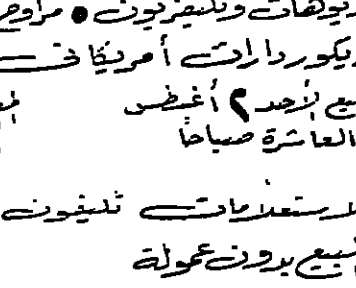 ريوهات وتليفزيون ● مراوح
ريكوردارات أمريكانى
يع الأحد ٢ أغسطس
العاشرة صباحاً
لاستعلامات تليفون
نبيع بدون عمولة